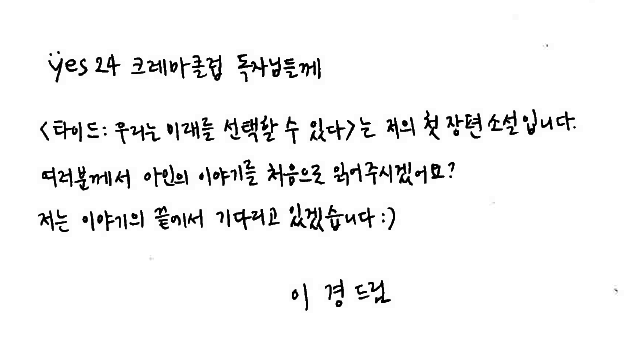 yes24 크레마클럽 독자님들께
<타이드: 우리는 미래를 선택할 수 있다>는 저의 첫 장편소설입니다.
여러분께서 아인의 이야기를 처음으로 읽어주시겠어요?
저는 이야기의 끝에서 기다리고 있겠습니다 :)
이 경 드림